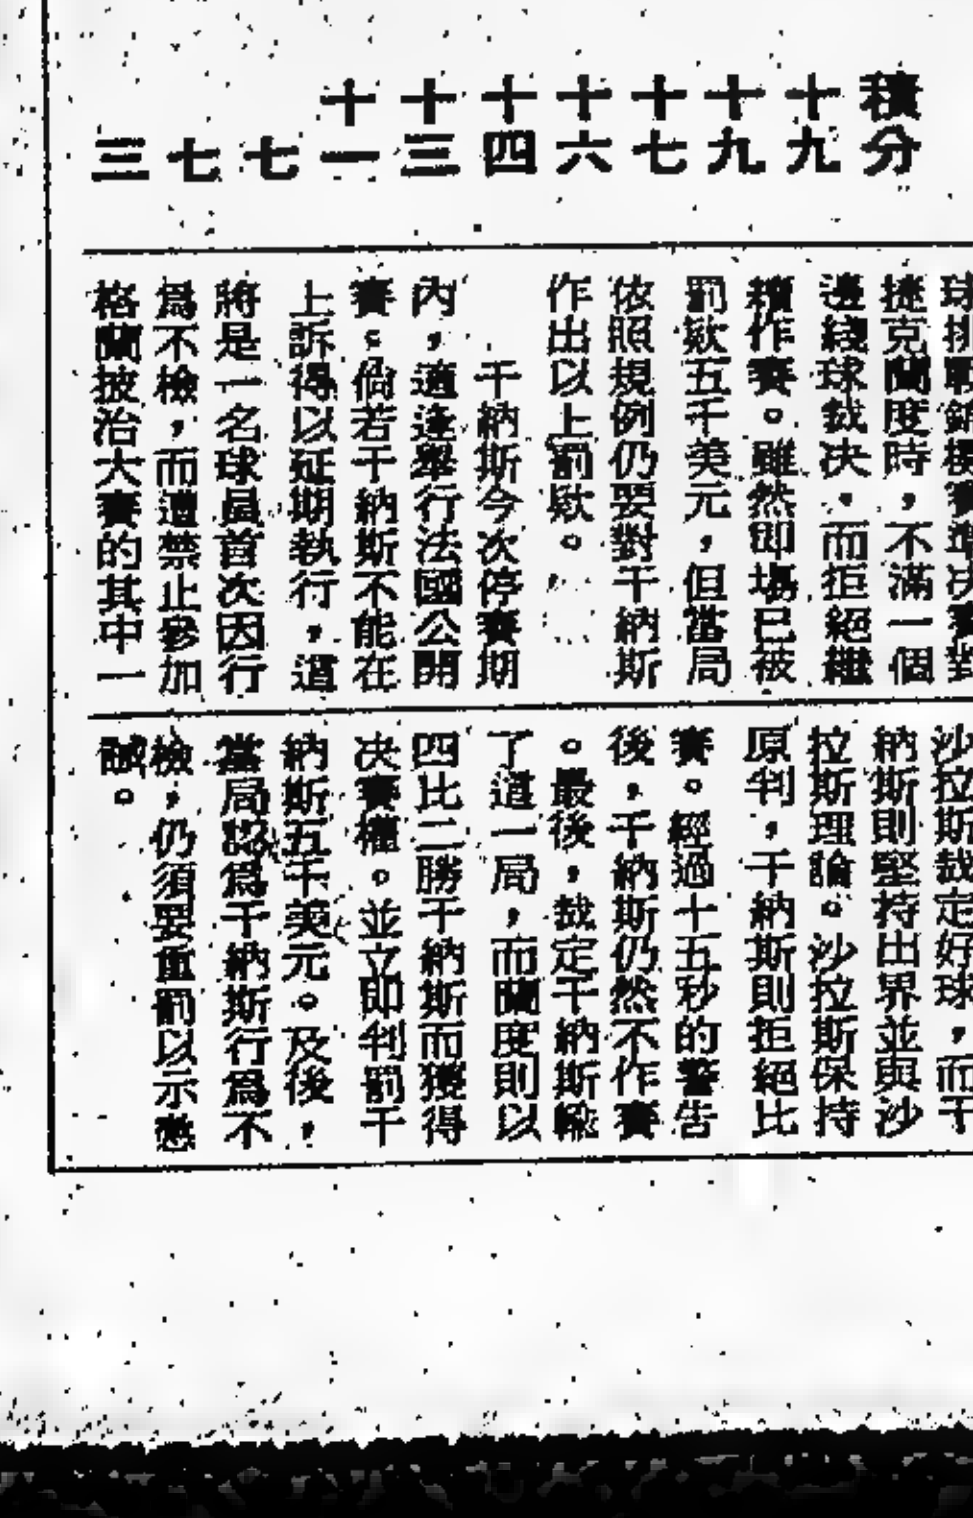 積分
十九
十九
十七
十六
十四
十三
十一
七
七
三
球挑戰錦標賽準决賽對
捷克蘭度時，不滿一個
邊綫球裁决，而拒絕繼
續作賽。雖然即場已被
罰欵五千美元，但當局
依照規例仍要對干納斯
作出以上罰欵。
干納斯今次停賽期
內，適逢舉行法國公開
賽。倘若干納斯不能在
上訴得以延期執行，這
將是一名球員首次因行
爲不檢，而遭禁止參加
格蘭披治大賽的其中一
沙拉斯裁定好球，而干
納斯則堅持出界並與沙
拉斯理論。沙拉斯保持
原判，干納斯則拒絕比
賽。經過十五秒的警告
後，干納斯仍然不作賽
。最後，裁定干納斯輸
了這一局，而蘭度則以
四比二勝干納斯而獲得
决賽權。並立即判罰干
納斯五千美元。及後，
當局認爲干納斯行爲不
檢，仍須要重罰以示懲
誡。